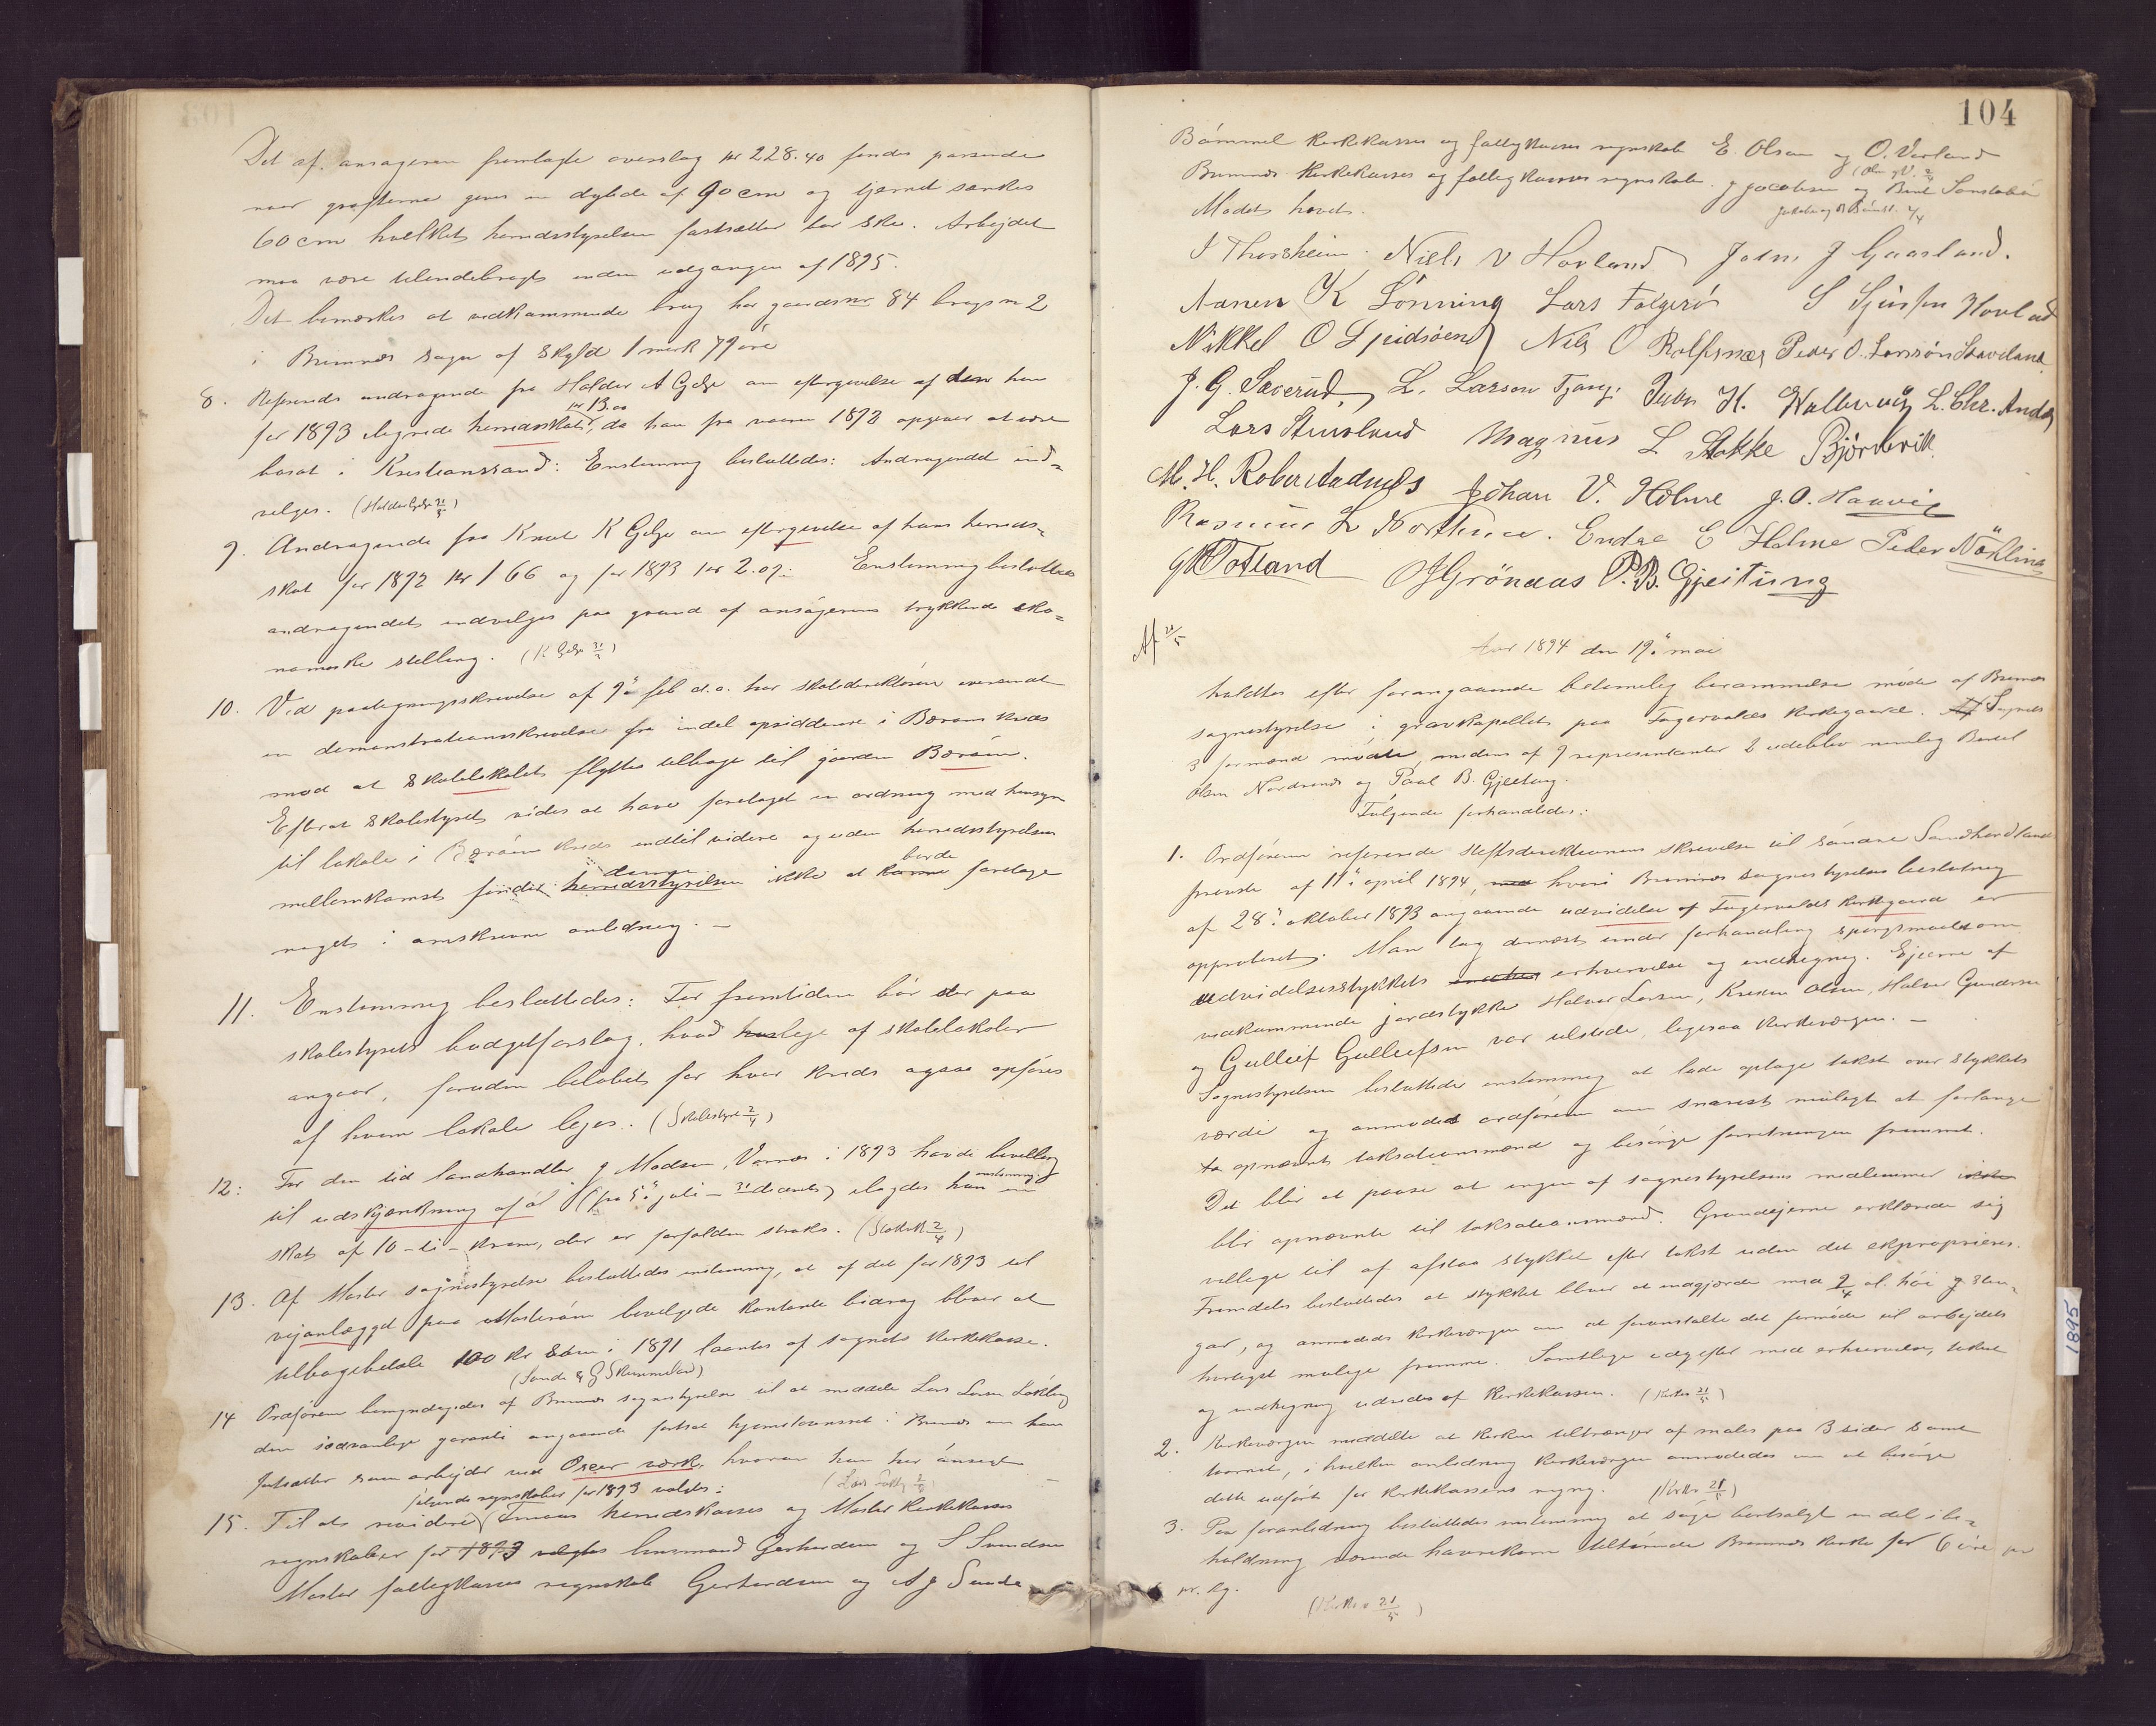 Det af ansøgeren fremlagte overslag kr 228.40 fandtes passende
naar grøfterne gives en dybde af 90 cm og tjernet sænkes
60 cm hvilket herredsstyrelsen fastsætter bør ske. Arbejdet
maa være tilendebragt inden udgangen af 1895.
Det bemærkes at vedkommende brug har gaardsnr 84 brugsnr 2
i Bremnes sogn af skyld 1 mark 79 øre
8. Refereredes andragende fra Halder A Gdsø om eftergivelse af den ham
for 1893 ilignede herredsskat, kr 13.00 da han fra vaaren 1892 opgiver at være
bosat i Kristianssand: Enstemmig besluttedes: Andragendet ind-
vilges. (Halder Gdsø 21/5)
9. Andragende fra Knut K Gdsø om eftergivelse af hans herreds-
skat for 1892 kr 1 66 og for 1893 kr 2.07: Enstemmig besluttedes
andragendet indvilges paa grund af ansøgerens trykkende øko-
nomiske stilling. (K Gdsø 21/5)
10. Ved paategningsskrivelse af 9de feb d.a. har skoledirektøren oversendt
en demonstrationsskrivelse fra endel opsiddere i Børøens kreds
mod at skolelokalet flyttes tilbage til gaarden Børøen.
Efterat skolestyret vides at have foretaget en ordning med hensyn
til lokale i Børøens kreds indtil videre og uden herredsstyrelsens
mellemkomst finder herredsstyrelsen denne ikke at kunne burde foretage
noget i omskrevne anledning. –
11. Enstemmig besluttedes: For fremtiden bør der paa
skolestyrets budgetforslag, hvad husleje af skolelokaler
angaar, foruden beløbet for hver kreds ogsaa opføres
af hvem lokale lejes. (Skolestyret 2/4)
12: For den tid landhandler J Madsen, Vornes i 1893 havde bevilling
til udskjænkning af øl (fra 5te juli – 31 decemb) ilagdes han enstemmig en
skat af 10 – ti – kroner, der er forfalden straks. (Skattek 2/4)
13. Af Moster sognestyrelse besluttedes enstemmig, at af det for 1893 til
vejanlægget paa Mosterøen bevilgede kontante bidrag bliver at
tilbagebetale 100 kr som i 1891 laantes af sognets kirkekasse.
(Sunde & G Skimmeland)
14 Ordføreren bemyndigedes af Bremnes sognestyrelse til at meddele Lars Larsen Løkling
den sædvanlige garanti angaaende fortsat hjemstavnsret i Bremnes om han
fortsætter som arbejder ved Oscar værk, hvorom han har ansøgt
(Lars Løkling 2/4)
15. Til at revidere følgende regnskaber for 1893 valdes: Finaas herredskasses og Moster kirkekasses
regnskaber for 1893 valgtes lensmand Gerhardsen og S Svendsen
Moster fattigkasses regnskab Gerhardsen og A J Sunde
104
Bømmel kirkekasses og fattigkasses regnskab E. Olsen og O. Vorland
(Olsen og V. 2/4
Bremnes kirkekasses og fattigkasses regnskab J Jacobsen og Berit Sønstabø
Mødet hævet.
Jakobsen og B Sønst. 2/4
I Thorsheim. Niels N Hovland John J Gaasland.
Aanen K Lönning Lars Folgerö S Sjursen Hovland
Nikkel O Spidsöen Nils O Rolfsnæs Peder O. Larssön Stavland
J. G. Sæverud, L. Larsson Tjong. Iver H. Hallevig L. Chr. Anda
Lars Steinsland Magnus L Stokke Björnevik
M. H. Robberstadnæs Johan V. Hölme J. O. Haavig
Rasmus L Northun. Endre E Holme Peder Nökling
G Totland O J Grönaas P. B. Gjeitung
Af 21/5
Aar 1894 den 19de mai
holdtes efter forangaaende betimelig berammelse møde af Bremnes
sognestyrelse i gravkapellet paa Fagervoldes kirkegaard. Af Sognets
3 formænd mødte, medens af 9 repræsentanter 2 udeblev nemlig Berul
Olsen Nordnæs og Paul B. Gjeitung.
Følgende forhandledes:
1. Ordføreren refererede stiftsdirektionens skrivelse til søndre Søndhordlands
provsti af 11te april 1894, hvori Bremnes sognestyrelses beslutning
af 28de oktober 1893 angaaende udvidelse af Fagervoldes kirkegaard er
approberet. Man tog dernæst under forhandling spørgsmaalet om
udvidelsesstykkets erhvervelse og indhegning. Ejerne af
vedkommende jordstykke Halvor Larsen, Kristen Olsen, Halvor Gundersen
og Gulleif Gulleifsen var tilstede, ligesaa kirkeværgen. –
Sognestyrelsen besluttede enstemmig at lade optage takst over stykkets
værdi og anmodet ordføreren om snarest muligt at forlange
opnævnt taksationsmænd og besørge forretningen fremmet.
Det blir at paase at ingen af sognestyrelsens medlemmer
blir opnævnte til taksationsmænd. Grundejerne erklærede sig
villige til at afstaa stykket efter takst uden det exproprieres.
Fremdeles besluttedes at stykket bliver at indgjærde med 9/4 al. høi sten-
gar, og anmodedes kirkeværgen om at foranstalte det fornødne til arbejdets
hurtigst mulige fremme. Samtlige udgifter med erhvervelse, takst
og indhegning udredes af kirkekassen. (Kirkev 21/5)
2. Kirkeværgen meddelte at kirken tiltrænger at males paa 3 sider samt
taarnet, i hvilken anledning kirkeværgen anmodedes om at besørge
dette udført for kirkekassens regning. (Kirkev 21/5)
3. Paa foranledning besluttedes enstemmig at søge bortsolgt en del i be-
holdning værende havrekorn tilhørende Bremnes kirke for 6 øre pr
pr. kg.
(Kirkev 21/5)
1895